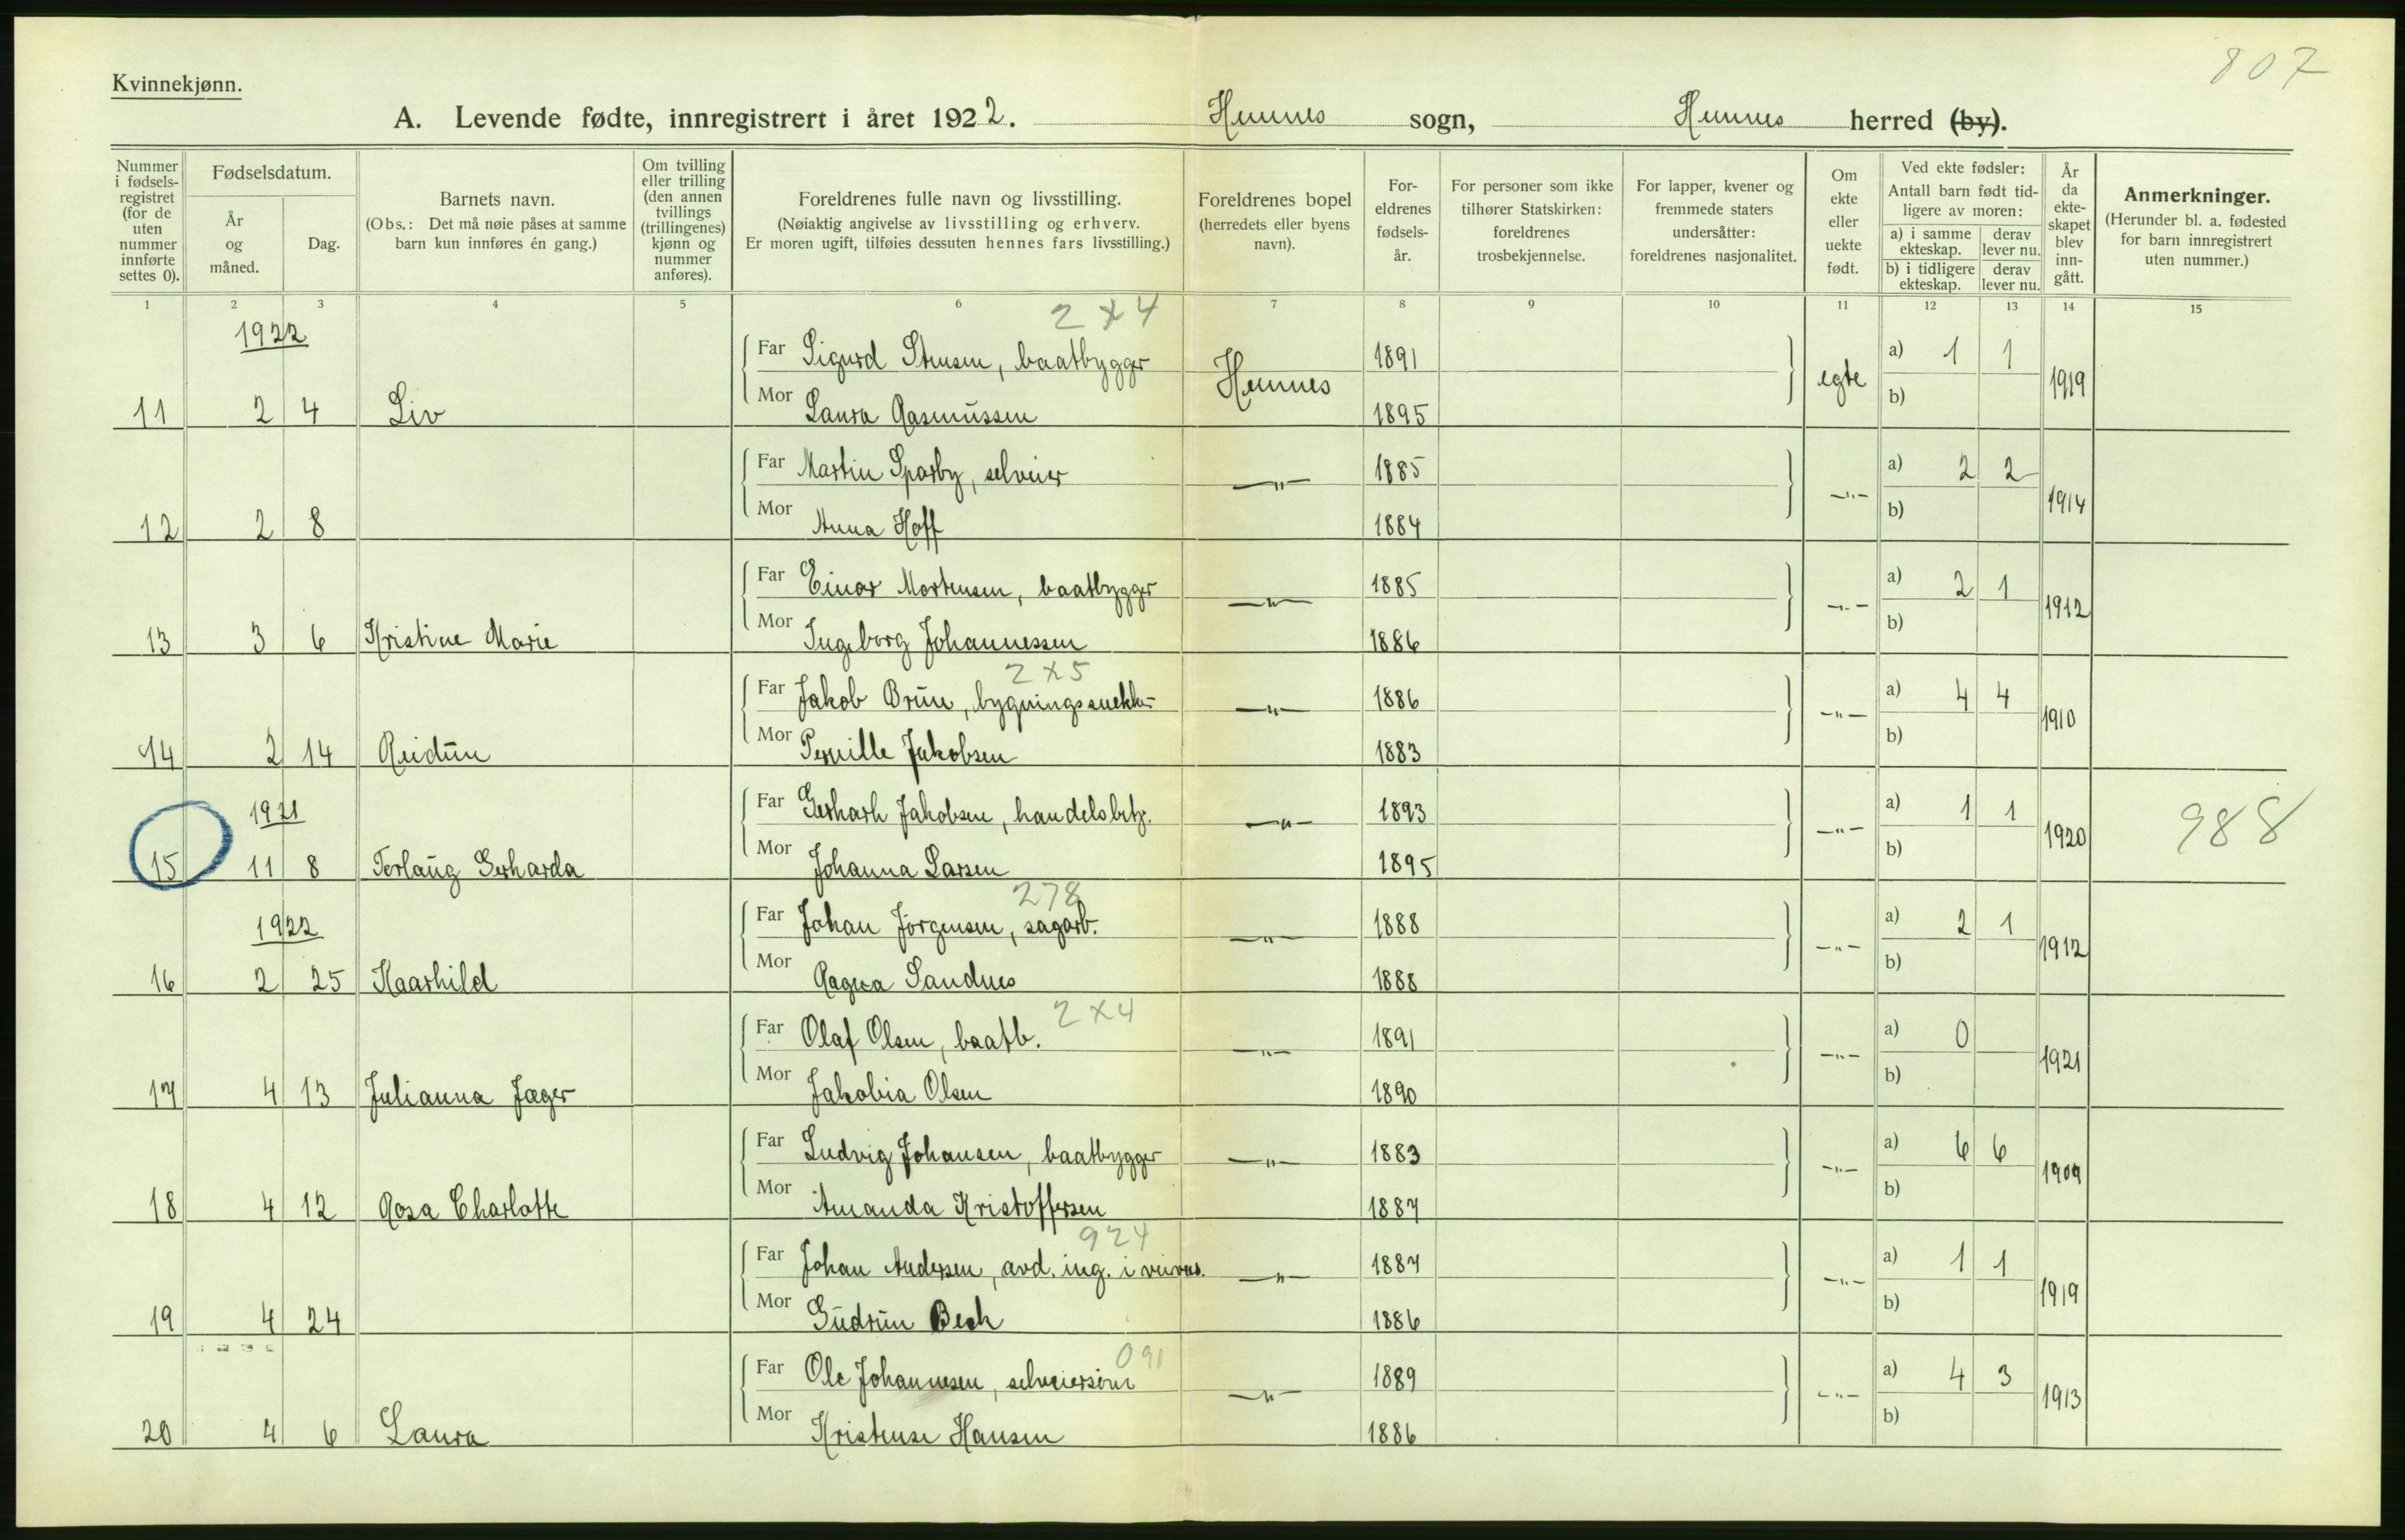 807
Kvinnekjønn.
A. Levende fødte, innregistrert i året 1922. Hemnes sogn, Hemnes herred (by).
Nummer i fødselsregistret (for de uten nummer innførte settes 0).
Fødselsdatum.
År og måned.
Dag.
Barnets navn.
(Obs.: Det må nøie påses at samme barn kun innføres én gang.)
Om tvilling eller trilling (den annen tvillings (trillingenes) kjønn og nummer anføres).
Foreldrenes fulle navn og livsstilling.
(Nøiaktig angivelse av livsstilling og erhverv.
Er moren ugift, tilføies dessuten hennes fars livsstilling.)
Foreldrenes bopel (herredets eller byens navn).
For-eldrenes fødsels-år.
For personer som ikke tilhører Statskirken: foreldrenes trosbekjennelse.
For lapper, kvener og fremmede staters undersåtter: foreldrenes nasjonalitet.
Om ekte eller uekte født.
Ved ekte fødsler:
Antall barn født tidligere av moren:
a) i samme ekteskap. derav lever nu.
b) i tidligere ekteskap. derav lever nu.
År da ekte-skapet blev inn-gått.
Anmerkninger.
(Herunder bl. a. fødested for barn innregistrert uten nummer.)
1 2 3 4 5 6 7 8 9 10 11 12 13 14 15
1922 2x4
Far Sigurd Stensen, baatbygger Hemnes 1891 egte a) 1 1 1919
11 2 4 Liv Mor Laura Rasmussen 1895 b)
Far Martin Sparby, selveier —"— 1885 —"— a) 2 2 1914
12 2 8 Mor Anna Hoff 1884 b)
Far Einar Mortensen, baatbygger —"— 1885 —"— a) 2 1 1912
13 3 6 Kristine Marie Mor Ingeborg Johannessen 1886 b)
2x5
Far Jakob Brun, bygningssnekker —"— 1886 —"— a) 4 4 1910
14 2 14 Reidun Mor Pernille Jakobsen 1883 b)
1921 Far Gerhard Jakobsen, handelsbetj. —"— 1893 —"— a) 1 1 1920 988
15 11 8 Torlaug Gerharda Mor Johanna Larsen 1895 b)
278
1922 Far Johan Jørgensen, sagarb. —"— 1888 —"— a) 2 1 1912
16 2 25 Kaarhild Mor Ragna Sandnes 1888 b)
2x4
Far Olaf Olsen, baatb. —"— 1891 —"— a) 0 1921
17 4 13 Julianna Jæger Mor Jakobia Olsen 1890 b)
Far Ludvig Johansen, baatbygger —"— 1883 —"— a) 6 6 1909
18 4 12 Rosa Charlotte Mor Amanda Kristoffersen 1887 b)
924
Far Johan Andersen, avd. ing. i veives. —"— 1887 —"— a) 1 1 1919
19 4 24 Mor Gudrun Bech 1886 b)
091
Far Ole Johannesen, selveiersøn —"— 1889 —"— a) 4 3 1913
20 4 6 Laura Mor Kristense Hansen 1886 b)